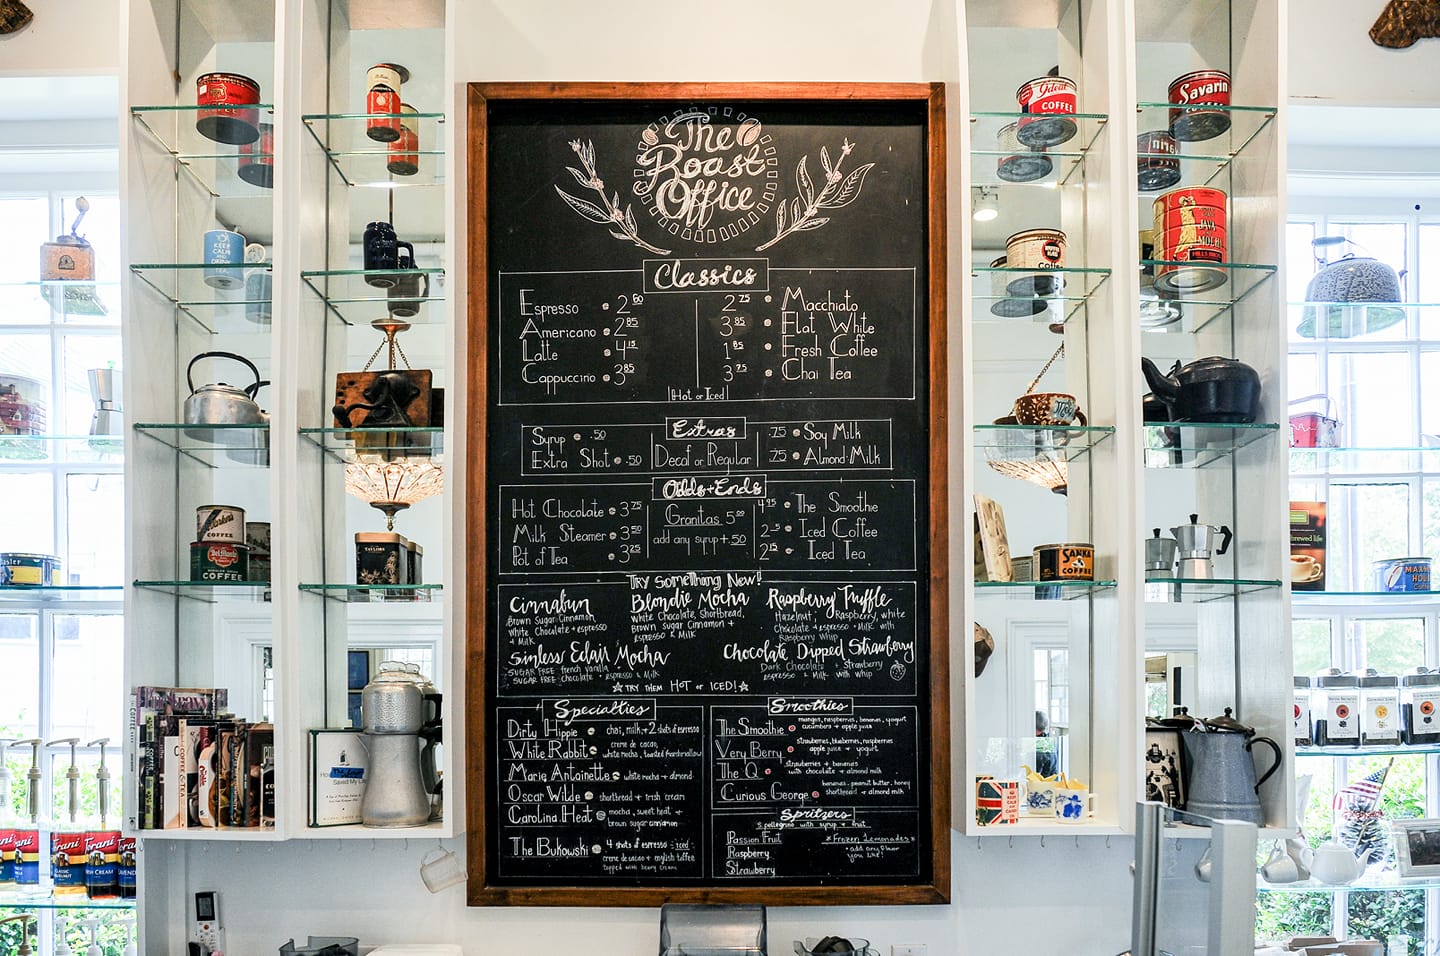 The
Roast
Office
Classics
Espresso 2 60
Americano 2 85
Latte 4 15
Cappuccino 3 85
2 75 Macchiato
3 85 Flat White
1 85 Fresh Coffee
3 75 Chai Tea
Hot or Iced
Extras
Syrup .50
Extra Shot .50
Decaf or Regular
.75 Soy Milk
.75 Almond Milk
Odds + Ends
Hot Chocolate 3 75
Milk Steamer 3 50
Pot of Tea 3 25
Granitas 5 00
add any syrup + .50
4 95 The Smoothie
Iced Coffee
2 15 Iced Tea
Try Something New!
Cinnabun
Brown Sugar Cinnamon,
White Chocolate + espresso
+ Milk
Blondie Mocha
White Chocolate, Shortbread,
Brown Sugar Cinnamon +
espresso & Milk
Raspberry Truffle
Hazelnut, Raspberry, white
Chocolate + espresso + Milk with
Raspberry Whip
Sinless Eclair Mocha
SUGAR FREE french vanilla
SUGAR FREE chocolate + espresso & Milk
Chocolate Dipped Strawberry
Dark Chocolate + Strawberry
espresso & Milk with whip
TRY THEM HOT or ICED!
Specialties
Dirty Hippie chai, milk + 2 shots of espresso
White Rabbit creme de cacao,
white mocha, toasted marshmallow
Marie Antoinette white mocha + almond
Oscar Wilde shortbread + irish cream
Carolina Heat mocha, sweet heat +
brown sugar cinnamon
The Bukowski 4 shots of espresso iced
creme de cacao + english toffee
topped with heavy cream
Smoothies
The Smoothie mangos, raspberries, bananas, yogurt
cucumbers + apple juice
Very Berry strawberries, blueberries, raspberries
apple juice + yogurt
The 'Q' strawberries + bananas
with chocolate + almond milk
Curious George bananas, peanut butter, honey
shortbread + almond milk
Spritzers
S. pellegrino with syrup + fruit
Passion Fruit
Raspberry
Strawberry
Frozen Lemonades
add any flavor
you like!
COFFEE
KEEP
CALM
AND
DRINK
TEA
COFFEE
Del Monte
COFFEE
Ideal
COFFEE
Savarin
COFFEE
JAVA
MOCHA
HILLS BROS
Coffee
SANKA
COFFEE
brewed life
MAXWELL
HOUSE
Saved My Life
Torani
Torani
CLASSIC
HAZELNUT
Torani
IRISH CREAM
Torani
LAVENDER